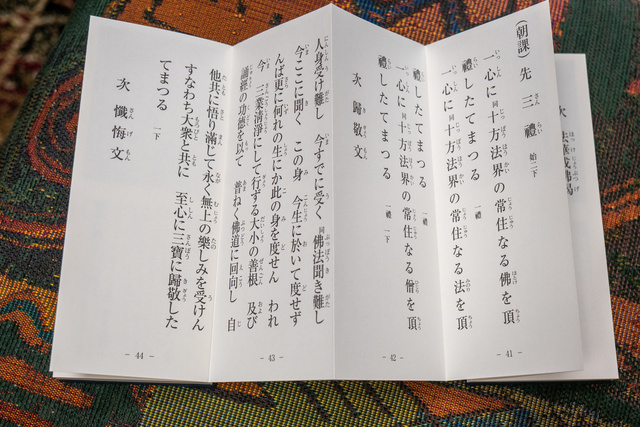 (朝課) 先 三禮 始二下
一心に同十方法界の常住なる佛を頂
禮したてまつる 一禮
一心に同十方法界の常住なる法を頂
- 41 -
禮したてまつる 一禮
一心に同十方法界の常住なる僧を頂
禮したてまつる 一禮 一下
次 歸敬文
- 42 -
人身受け難し 今すでに受く 同佛法聞き難し
今ここに聞く この身 今生に於いて度せず
んば更に何れの生にか此の身を度せん われ
今 三業清淨にして行ずる大小の善根 及び
誦經の功德を以て 普ねく佛道に回向し 自
- 43 -
他共に悟り滿して永く無上の樂しみを受けん
すなわち大衆と共に 至心に三寶に歸敬した
てまつる 一下
次 懺悔文
- 44 -